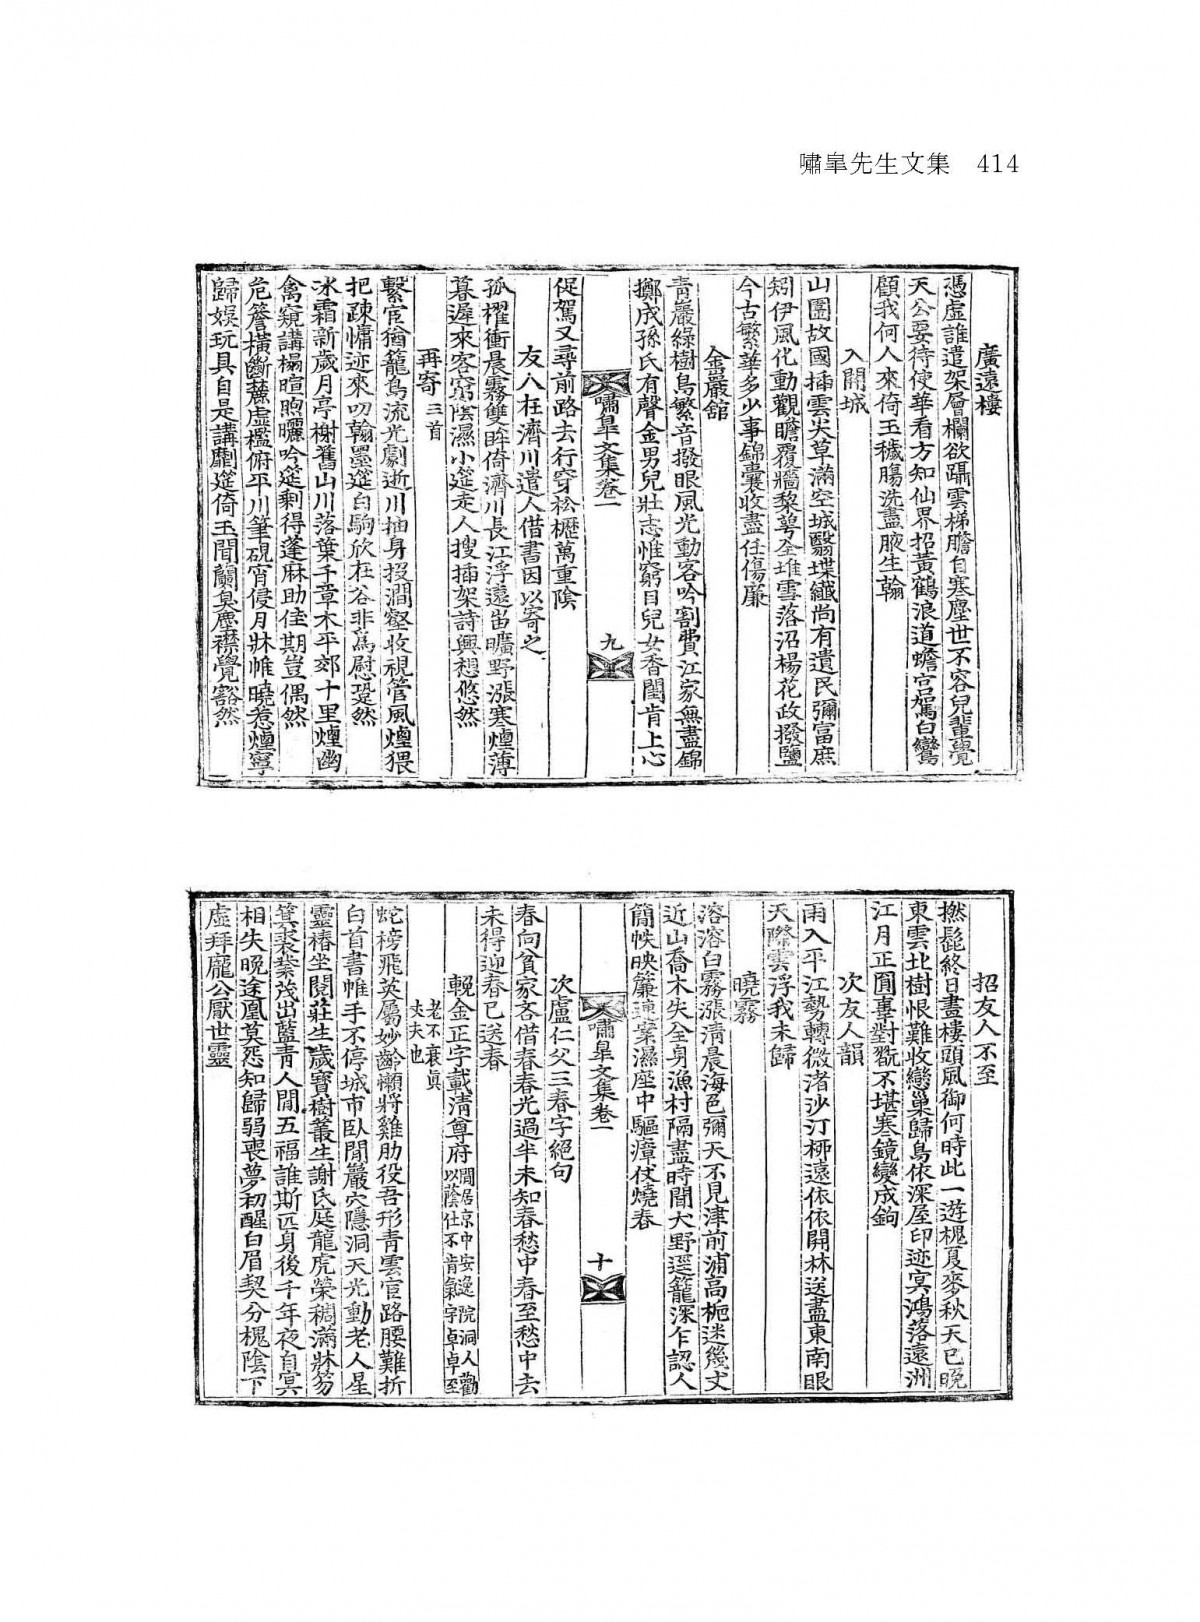 嘯皐先生文集 414
廣遠樓
憑虛誰遣架層欄欲躡雲梯膽自寒塵世不容兒輩覺
天公要待使華看方知仙界招黃鶴浪道蟾宮駕白鸞
顧我何人來倚玉穢膓洗盡腋生翰
入開城
山圍故國插雲尖草滿空城翳堞纖尚有遺民彌富庶
矧伊風化動觀瞻覆牆黎萼全堆雪落沼楊花政撥鹽
今古繁華多少事錦囊收盡任傷廉
金巖舘
靑巖綠樹鳥繁音撥眼風光動客吟割費江家無盡錦
擲成孫氏有聲金男兒壯志惟窮日兒女香閨肯上心
嘯皐文集卷一
九
促駕又尋前路去行穿松櫪萬重陰
友人在濟川遣人借書因以寄之
孤櫂衝晨霧雙眸倚濟川長江浮遠岫曠野漲寒煙薄
暮遲來客窮陰濕小筵走人搜插架詩興想悠然
再寄 三首
繫官猶籠鳥流光劇逝川抽身投澗壑收視管風煙猥
把疎慵迹來叨翰墨筵白駒欣在谷非爲慰跫然
氷霜新歲月亭榭舊山川落葉千章木平郊十里煙幽
禽窺講榻暄煦曬吟筵剩得蓬麻助佳期豈偶然
危簷橫斷麓虛檻俯平川筆硯宵侵月牀帷曉惹煙寧
歸娛玩具自是講劘筵倚玉聞蘭臭塵襟覺豁然
招友人不至
撚髭終日畫樓頭風御何時此一遊槐夏麥秋天已晩
東雲北樹恨難收戀巢歸鳥依深屋印迹冥鴻落遠洲
江月正圓事對翫不堪寒鏡變成鉤
次友人韻
雨入平江勢轉微渚沙汀柳遠依依開林送盡東南眼
天際雲浮我未歸
曉霧
溶溶白霧漲淸晨海邑彌天不見津前浦高桅迷幾丈
近山喬木失全身漁村隔盡時聞犬野逕籠深乍認人
簡帙映簾連案濕座中驅瘴仗燒春
嘯皐文集卷一
十
次盧仁父三春字絕句
春向貧家吝借春春光過半未知春愁中春至愁中去
未得迎春已送春
輓金正字載淸尊府 閒居京中安逸院洞人勸以蔭仕不肯氣字卓卓至
老不衰眞丈夫也
蛇榜飛英屬妙齡懶將雞肋役吾形靑雲官路腰難折
白首書帷手不停城市臥閒巖穴隱洞天光動老人星
靈椿坐閱莊生歲寶樹叢生謝氏庭龍虎榮稠滿牀笏
箕裘業茂出藍靑人間五福誰斯匹身後千年夜自冥
相失晩途凰莫怨知歸弱喪夢初醒白眉契分槐陰下
虛拜龐公厭世靈